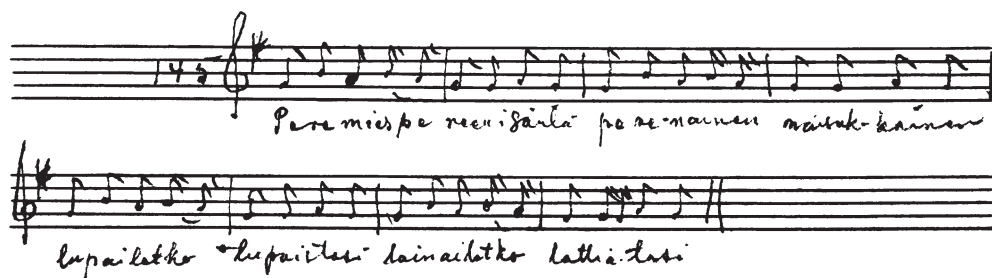 145
Peremiespe neen isäntä pere-nainen naisuk-kainen
lupailetko lupaistasi lainailetko lattia-tasi